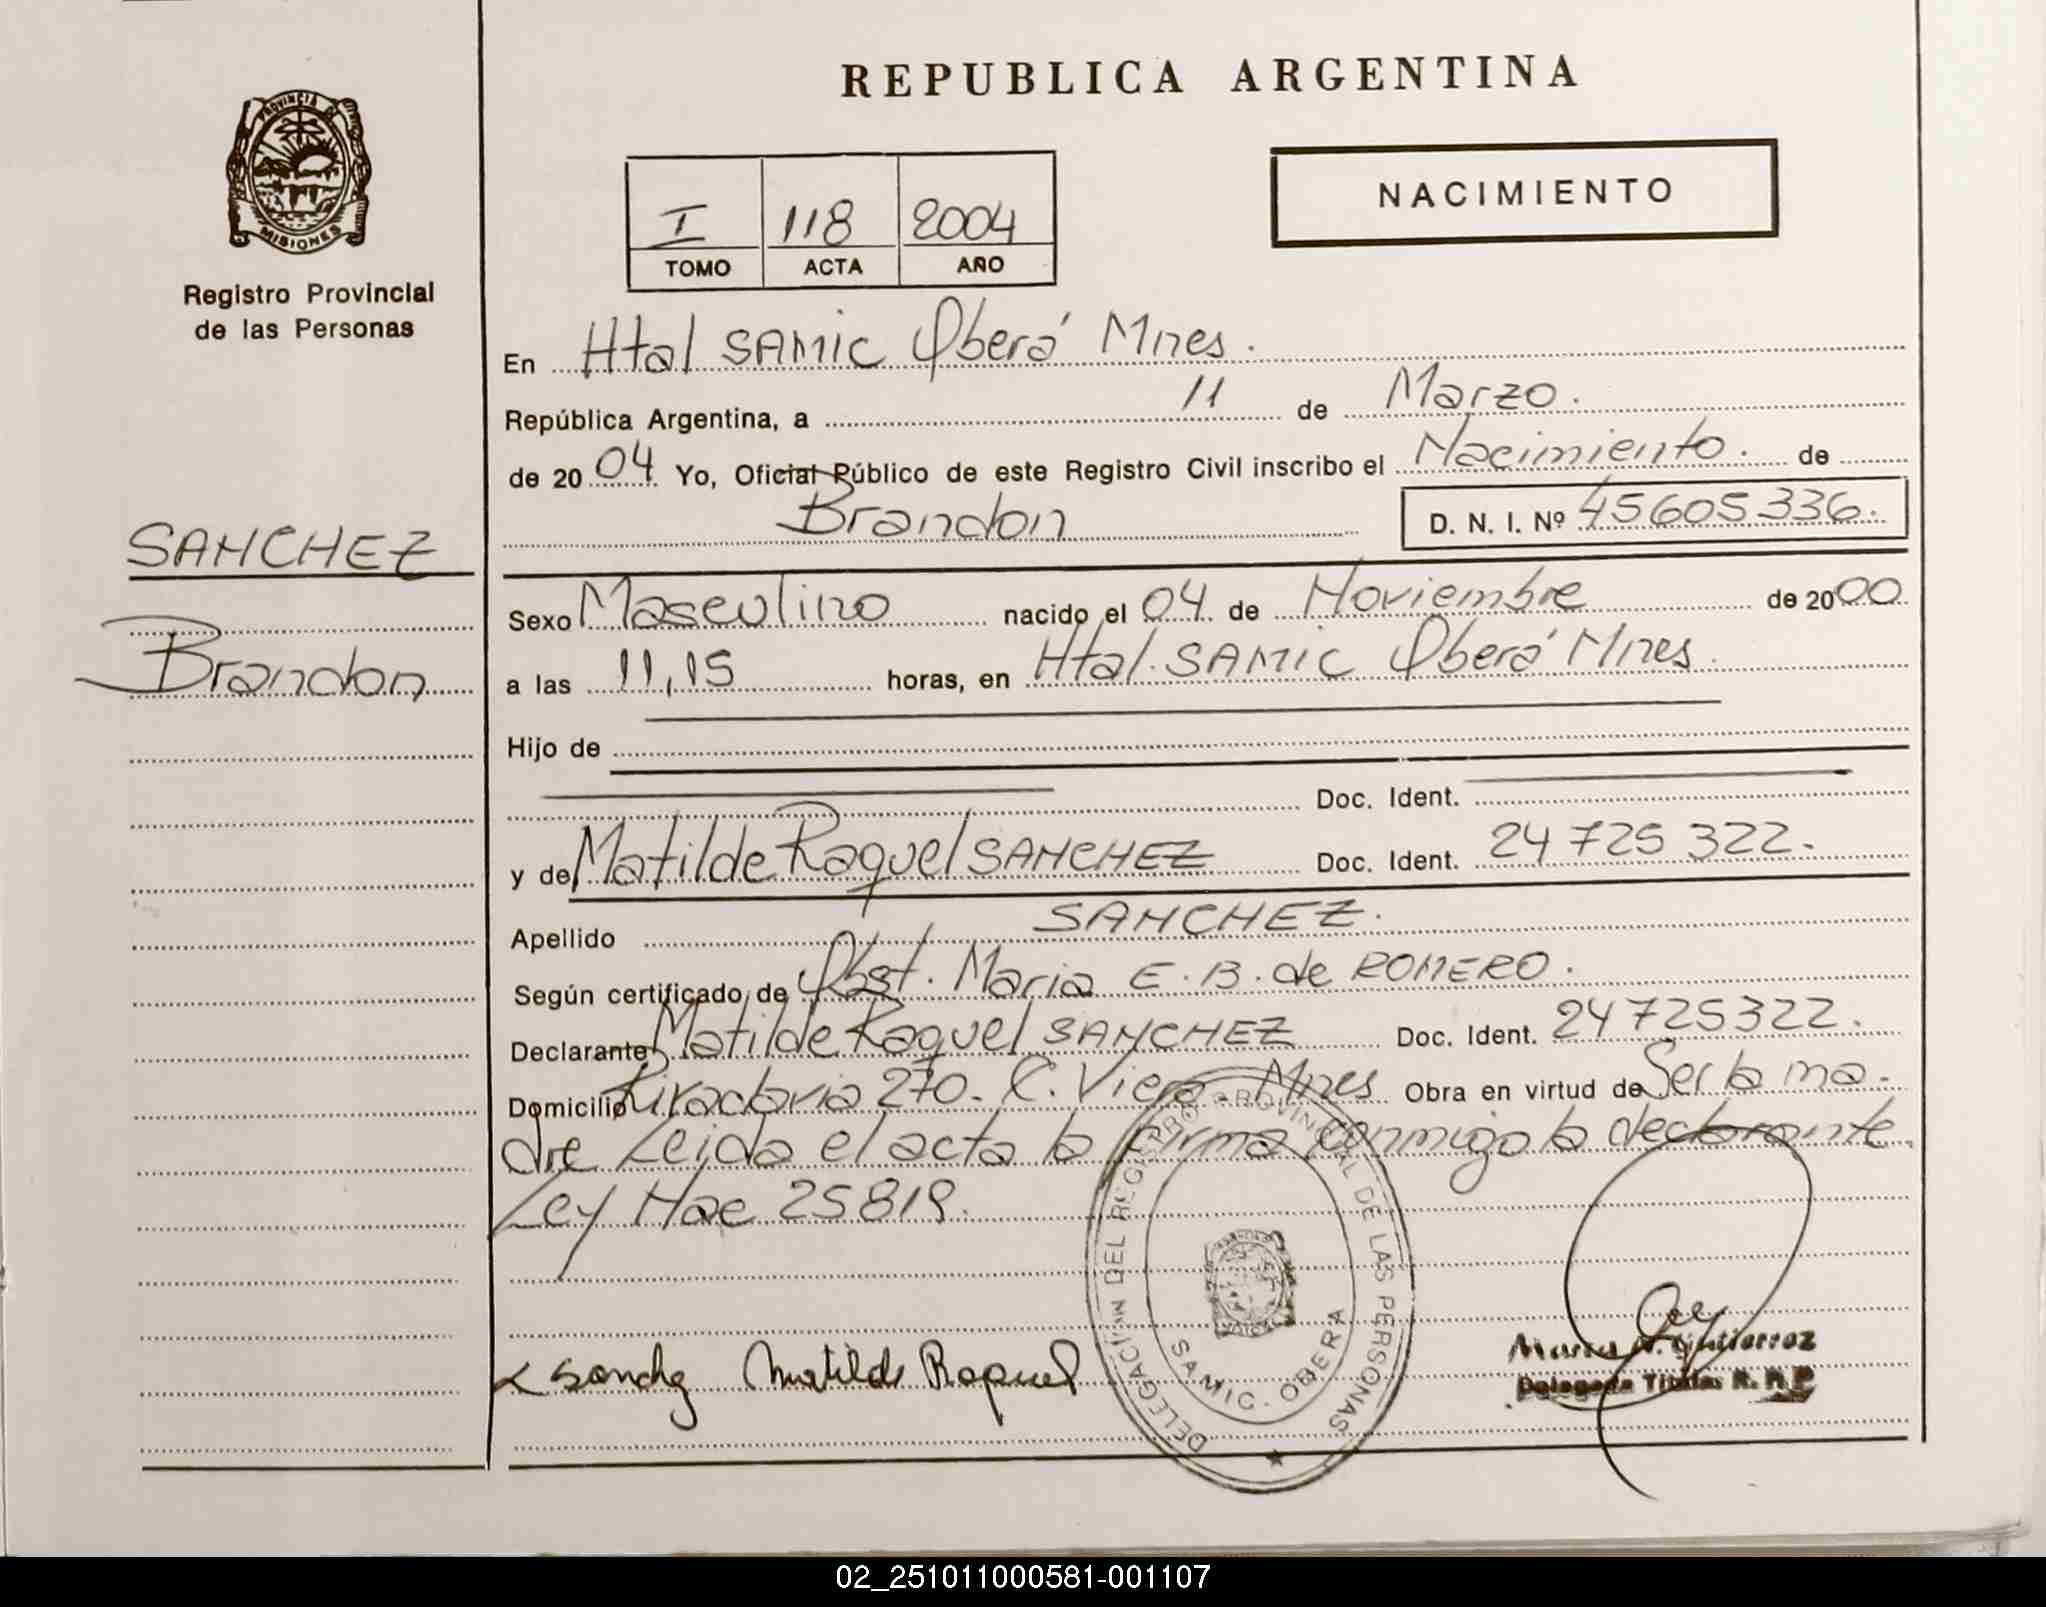 REPUBLICA ARGENTINA
PROVINCIA DE
MISIONES
Registro Provincial
de las Personas
NACIMIENTO
I 118 2004
TOMO ACTA AÑO
En Htal SAMIC Oberá Mnes.
República Argentina, a 11 de Marzo.
de 2004 Yo, Oficial Público de este Registro Civil inscribo el Nacimiento. de
Brandon D. N. I. Nº 45605336.
SANCHEZ
Brandon
Sexo Masculino nacido el 04 de Noviembre de 2000
a las 11,15 horas, en Htal. SAMIC Oberá Mnes.
Hijo de
Doc. Ident.
y de Matilde Raquel SANCHEZ Doc. Ident. 24 725 322.
Apellido SANCHEZ.
Según certificado de Obst. Maria E. B. de ROMERO.
Declarante Matilde Raquel SANCHEZ Doc. Ident. 24725322.
Domicilio Rivadavia 270. C. Viera. Mnes Obra en virtud de Ser la ma-
dre Leida el acta la firma conmigo la declarante.
Ley Nac 25819.
Sanchz Matilde Raquel
DELEGACION DEL REGISTRO PROVINCIAL DE LAS PERSONAS
SAMIC. OBERA
Gutierrez
Delegada Titular R. P. P
02_251011000581-001107